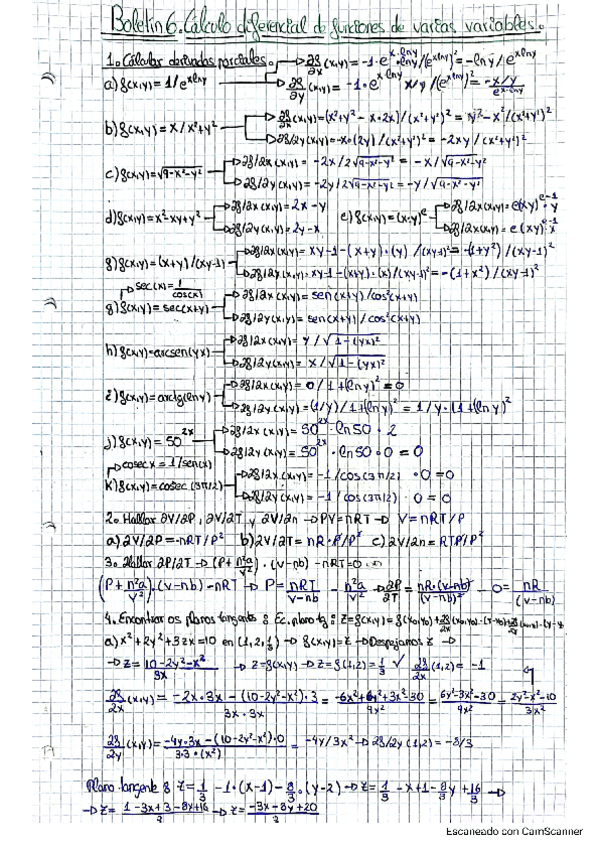 Boletín 6. Cálculo diferencial de funciones de varias variables.
1. Calcular derivadas parciales.
∂g/∂x (x,y) = -1·e^(x·lny)·lny/(e^(xlny))² = -lny/e^(xlny)
a) g(x,y) = 1/e^(xlny)
∂g/∂y (x,y) = -1·e^(x·lny) x/y/(e^(xlny))² = -x/y / e^(x·lny)
∂g/∂x (x,y) = (x²+y² - x·2x)/(x²+y²)² = y² - x²/(x²+y²)²
b) g(x,y) = x/x²+y²
∂g/∂y (x,y) = -x·(2y)/(x²+y²)² = -2xy/(x²+y²)²
c) g(x,y) = √9-x²-y²
∂g/∂x (x,y) = -2x/2√9-x²-y² = -x/√9-x²-y²
∂g/∂y (x,y) = -2y/2√9-x²-y² = -y/√9-x²-y²
d) g(x,y) = x²-xy+y²
∂g/∂x (x,y) = 2x-y
∂g/∂y (x,y) = 2y-x
e) g(x,y) = (x·y)^e
∂g/∂x (x,y) = e(xy)^(e-1)·y
∂g/∂x (x,y) = e(xy)^(e-1)·x
g) g(x,y) = (x+y)/(xy-1)
∂g/∂x (x,y) = xy-1-(x+y)·(y)/(xy-1)² = -(1+y²)/(xy-1)²
∂g/∂y (x,y) = xy-1-(x+y)·(x)/(xy-1)² = -(1+x²)/(xy-1)²
sec(x) = 1/cos(x)
g) g(x,y) = sec(x+y)
∂g/∂x (x,y) = sen(x+y)/cos²(x+y)
∂g/∂y (x,y) = sen(x+y)/cos²(x+y)
h) g(x,y) = arcsen(yx)
∂g/∂x (x,y) = y/√1-(yx)²
∂g/∂y (x,y) = x/√1-(yx)²
i) g(x,y) = arctg(lny)
∂g/∂x (x,y) = 0/1+(lny)² = 0
∂g/∂y (x,y) = (1/y)/1+(lny)² = 1/y·(1+(lny)²
j) g(x,y) = 50^(2x)
∂g/∂x (x,y) = 50^(2x)·ln50·2
∂g/∂y (x,y) = 50^(2x)·ln50·0 = 0
cosec x = 1/sen(x)
k) g(x,y) = cosec(3π/2)
∂g/∂x (x,y) = -1/cos(3π/2) ·0 = 0
∂g/∂y (x,y) = -1/cos(3π/2) ·0 = 0
2. Hallar ∂V/∂P, ∂V/∂T y ∂V/∂n → PV = nRT → V = nRT/P
a) ∂V/∂P = -nRT/P² b) ∂V/∂T = nR·P/P² c) ∂V/∂n = RTP/P²
3. Hallar ∂P/∂T → (P + n²a/V²)·(v-nb) - nRT = 0
(P + n²a/V²)·(v-nb) - nRT → P = nRT/v-nb - n²a/V² → ∂P/∂T = nR·(v-nb)/(v-nb)² - 0 = nR/(v-nb)
4. Encontrar os planos tangente
a) x²+2y²+3zx=10 en (1,2,1/3) → g(x,y)=z → Despejamos z →
→ z = 10-2y²-x²/3x → z=g(x,y) → z=g(1,2)=1/3 ✓ ∂g/∂x (1,2) = -1
∂g/∂x (x,y) = -2x·3x-(10-2y²-x²)·3/3x·3x = -6x²+6y²+3x²-30/9x² = 6y²-3x²-30/9x² = 2y²-x²-10/3x²
∂g/∂y (x,y) = -4y·3x-(10-2y²-x²)·0/3·3·(x²) = -4y/3x → ∂g/∂y (1,2) = -8/3
Plano tangente z = 1/3 -1·(x-1) - 8/3·(y-2) → z = 1/3 -x+1 - 8/3y + 16/3 →
→ z = 1-3x+3-8y+16/3 → z = -3x-8y+20/3
Escaneado con CamScanner